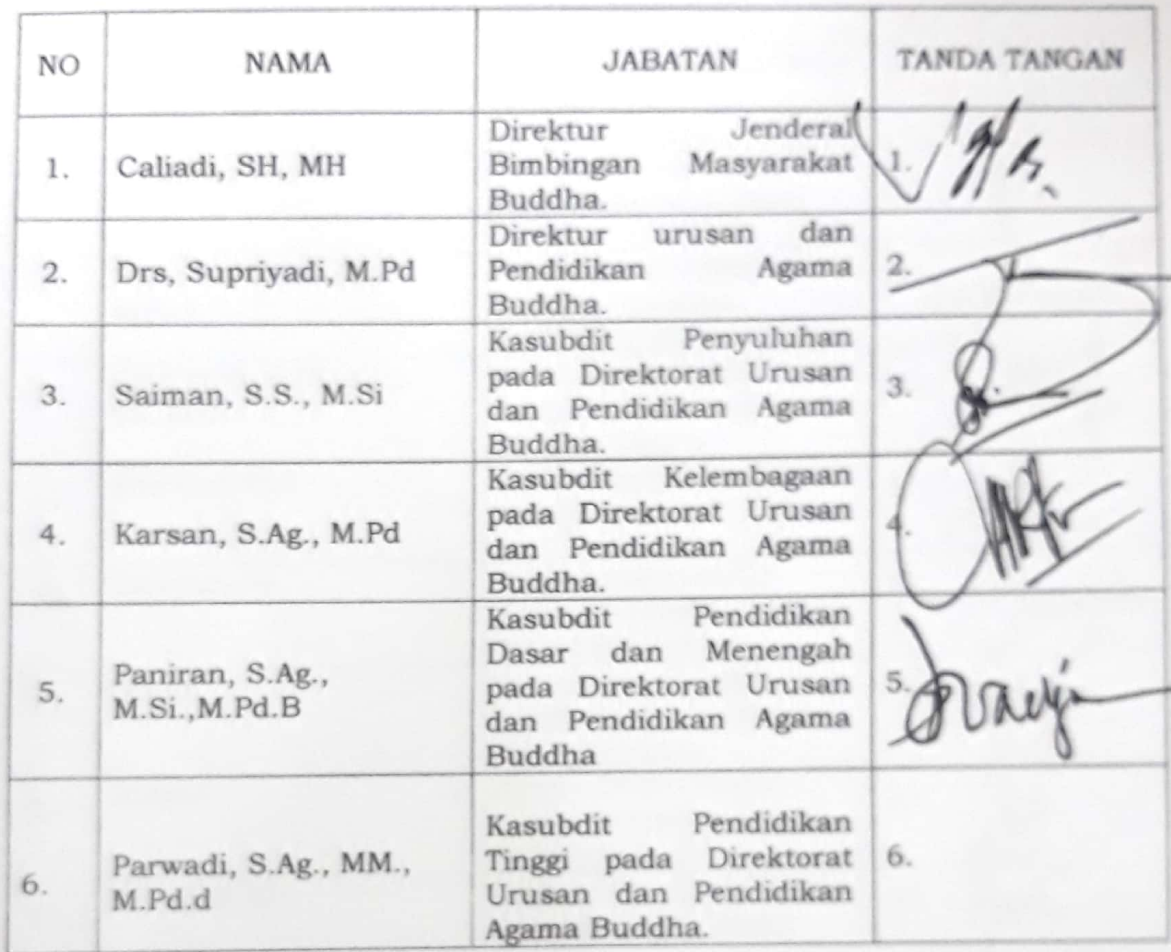 NO NAMA JABATAN TANDA TANGAN
1. Caliadi, SH, MH
Direktur Jenderal
Bimbingan Masyarakat
Buddha.
1.
2. Drs, Supriyadi, M.Pd
Direktur urusan dan
Pendidikan Agama
Buddha.
2.
3. Saiman, S.S., M.Si
Kasubdit Penyuluhan
pada Direktorat Urusan
dan Pendidikan Agama
Buddha.
3.
4. Karsan, S.Ag., M.Pd
Kasubdit Kelembagaan
pada Direktorat Urusan
dan Pendidikan Agama
Buddha.
4.
5. Paniran, S.Ag.,
M.Si.,M.Pd.B
Kasubdit Pendidikan
Dasar dan Menengah
pada Direktorat Urusan
dan Pendidikan Agama
Buddha
5.
6. Parwadi, S.Ag., MM.,
M.Pd.d
Kasubdit Pendidikan
Tinggi pada Direktorat
Urusan dan Pendidikan
Agama Buddha.
6.